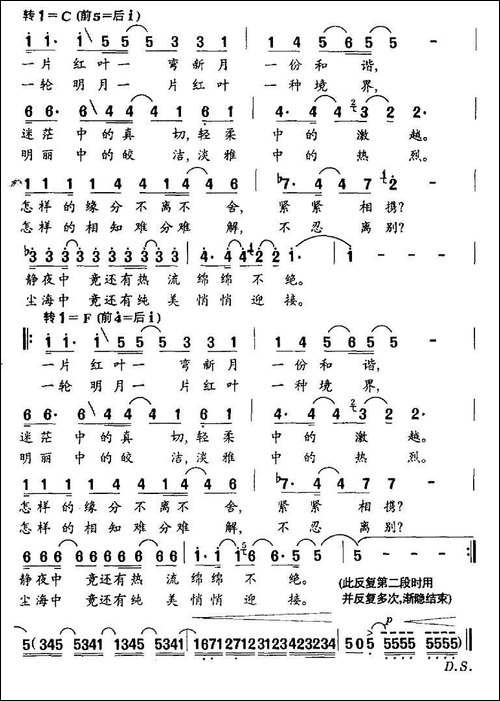 转1=C(前5=后i)
i i· i\ 5 5 5 3 3 1 | 1 4 5 6 5 5 - |
一片 红叶一 弯新月 一份和谐,
一轮 明月一 片红叶 一种境界,
6 6· 6\ 4 4 4 1 6 1 | 4· 4 4 3 2 2· |
迷茫 中的真 切,轻柔 中的激越。
明丽 中的皎 洁,淡雅 中的热烈。
1 1 1 1 4 4 1 4 4 6 | b7· 4 4 7 2 - |
怎样的缘分不离不 舍, 紧紧相携?
怎样的相知难分难 解, 不忍离别?
b3 3 3 3 3 3 3 3 3 | 4· 4 4 2 2 1· | 1 - - |
静夜中 竟还有热 流绵绵不绝。
尘海中 竟还有纯 美悄悄迎接。
转1=F(前4=后i)
‖: i i· i\ 5 5 5 3 3 1 | 1 4 5 6 5 5 - |
一片 红叶一 弯新月 一份和谐,
一轮 明月一 片红叶 一种境界,
6 6· 6\ 4 4 4 1 6 1 | 4· 4 4 3 2 2· |
迷茫 中的真 切,轻柔 中的激越。
明丽 中的皎 洁,淡雅 中的热烈。
1 1 1 1 4 4 1 4 4 6 | b7· 4 4 7 7 - |
怎样的缘分不离不 舍, 紧紧相携?
怎样的相知难分难 解, 不忍离别?
6 6 6 6 6 6 6 6 6 | i· i i 6 6· 5 | 5 - - :‖
静夜中 竟还有热 流绵绵不绝。 (此反复第二段时用
尘海中 竟还有纯 美悄悄迎接。 并反复多次,渐隐结束)
p
5(345 5341 1345 5341 | 1671 2712 3123 4234 234 | 5 0 5 5555 5555) |
D.S.